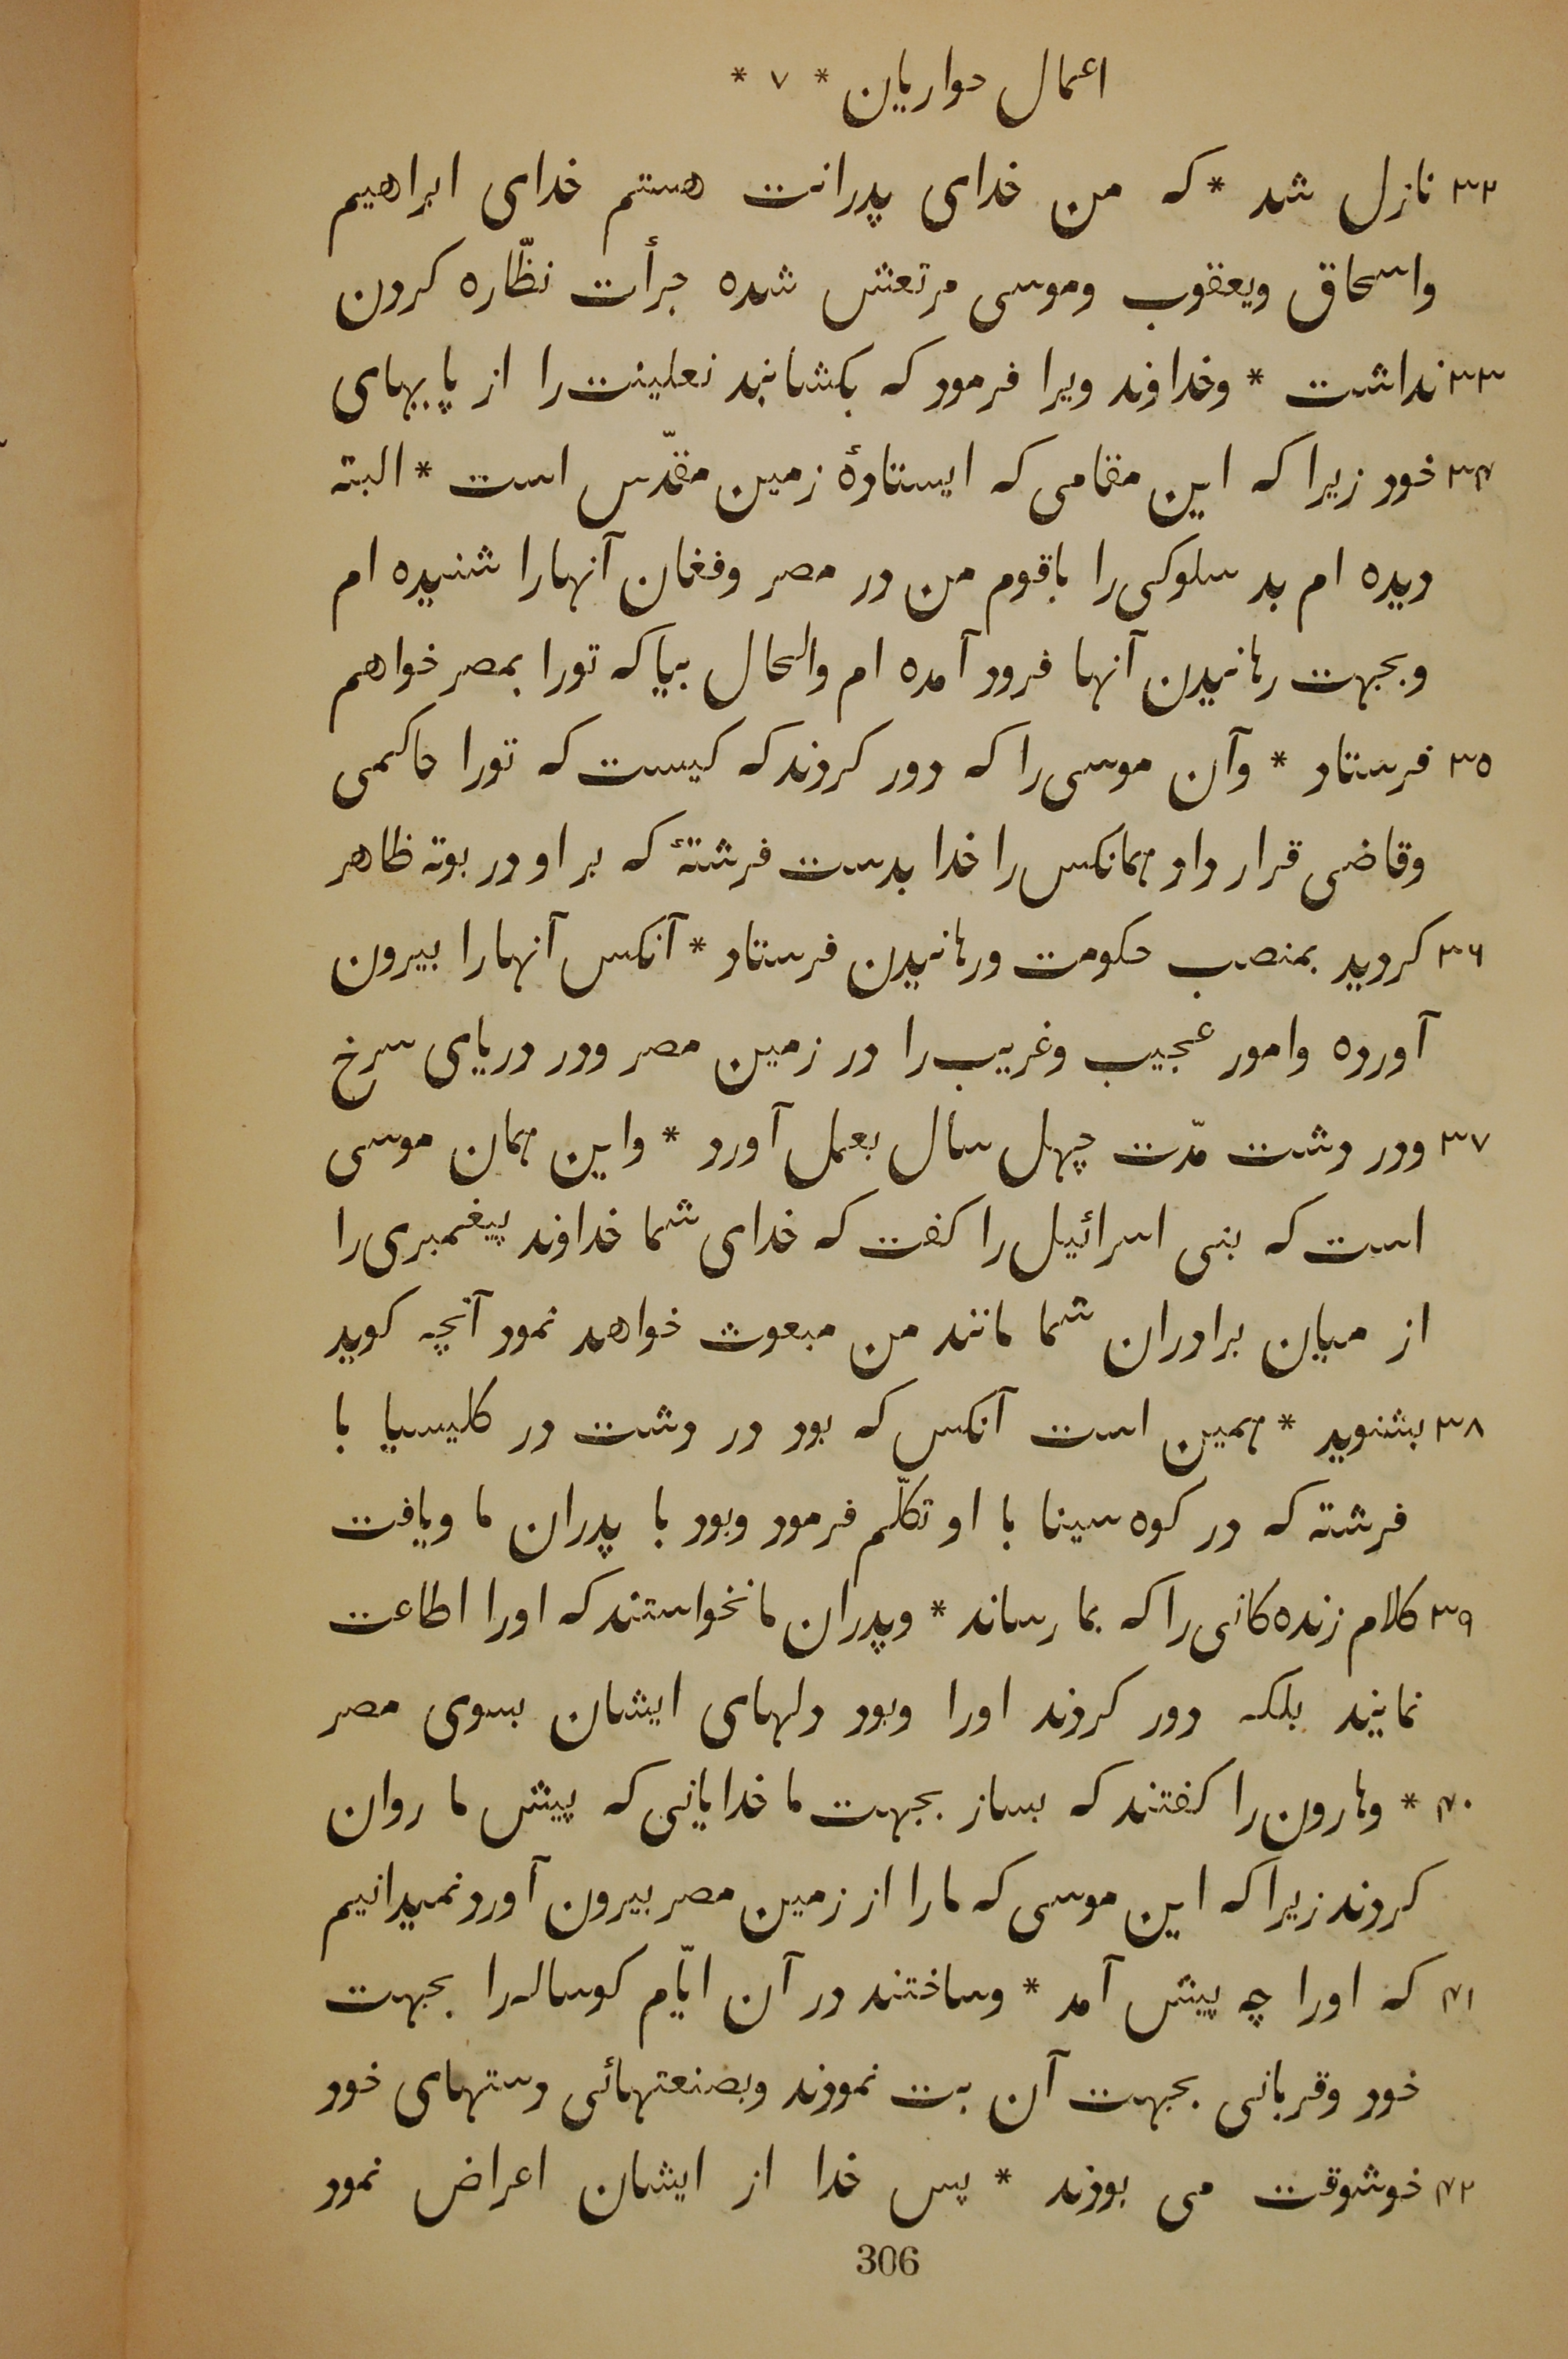 اعمال حواریان * ۷ *
۳۲ نازل شد * که من خدای پدرانت هستم خدای ابراهیم
واسحاق ویعقوب وموسی مرتعش شده جرأت نظّاره کردن
۳۳ نداشت * وخداوند ویرا فرمود که بکشانید نعلینت را از پایهای
۳۴ خود زیرا که این مقامی که ایستادهٔ زمین مقدّس است * البته
دیده ام بد سلوکی را باقوم من در مصر وفغان آنهارا شنیده ام
وبجهت رهانیدن آنها فرود آمده ام والحال بیا که تورا بمصر خواهم
۳۵ فرستاد * وآن موسی را که دور کردند که کیست که تورا حاکمی
وقاضی قرار داد همانکس را خدا بدست فرشتهٔ که بر او در بوته ظاهر
۳۶ کردید بمنصب حکومت ورهانیدن فرستاد * آنکس آنهارا بیرون
آورده وامور عجیب وغریب را در زمین مصر ودر دریای سرخ
۳۷ ودر دشت مدّت چهل سال بعمل آورد * واین همان موسی
است که بنی اسرائیل را کفت که خدای شما خداوند پیغمبری را
از میان برادران شما مانند من مبعوث خواهد نمود آنچه کوید
۳۸ بشنوید * همین است آنکس که بود در دشت در کلیسیا با
فرشته که در کوه سینا با او تکلّم فرمود وبود با پدران ما ویافت
۳۹ کلام زنده کانی را که بما رساند * وپدران ما نخواستند که اورا اطاعت
نمایند بلکه دور کردند اورا وبود دلهای ایشان بسوی مصر
۴۰ * وهارون را کفتند که بساز بجهت ما خدایانی که پیش ما روان
کردند زیرا که این موسی که مارا از زمین مصر بیرون آورد نمیدانیم
۴۱ که اورا چه پیش آمد * وساختند در آن ایّام کوساله را بجهت
خود وقربانی بجهت آن بت نمودند وبصنعتهائی دستهای خود
۴۲ خوشوقت می بودند * پس خدا از ایشان اعراض نمود
306